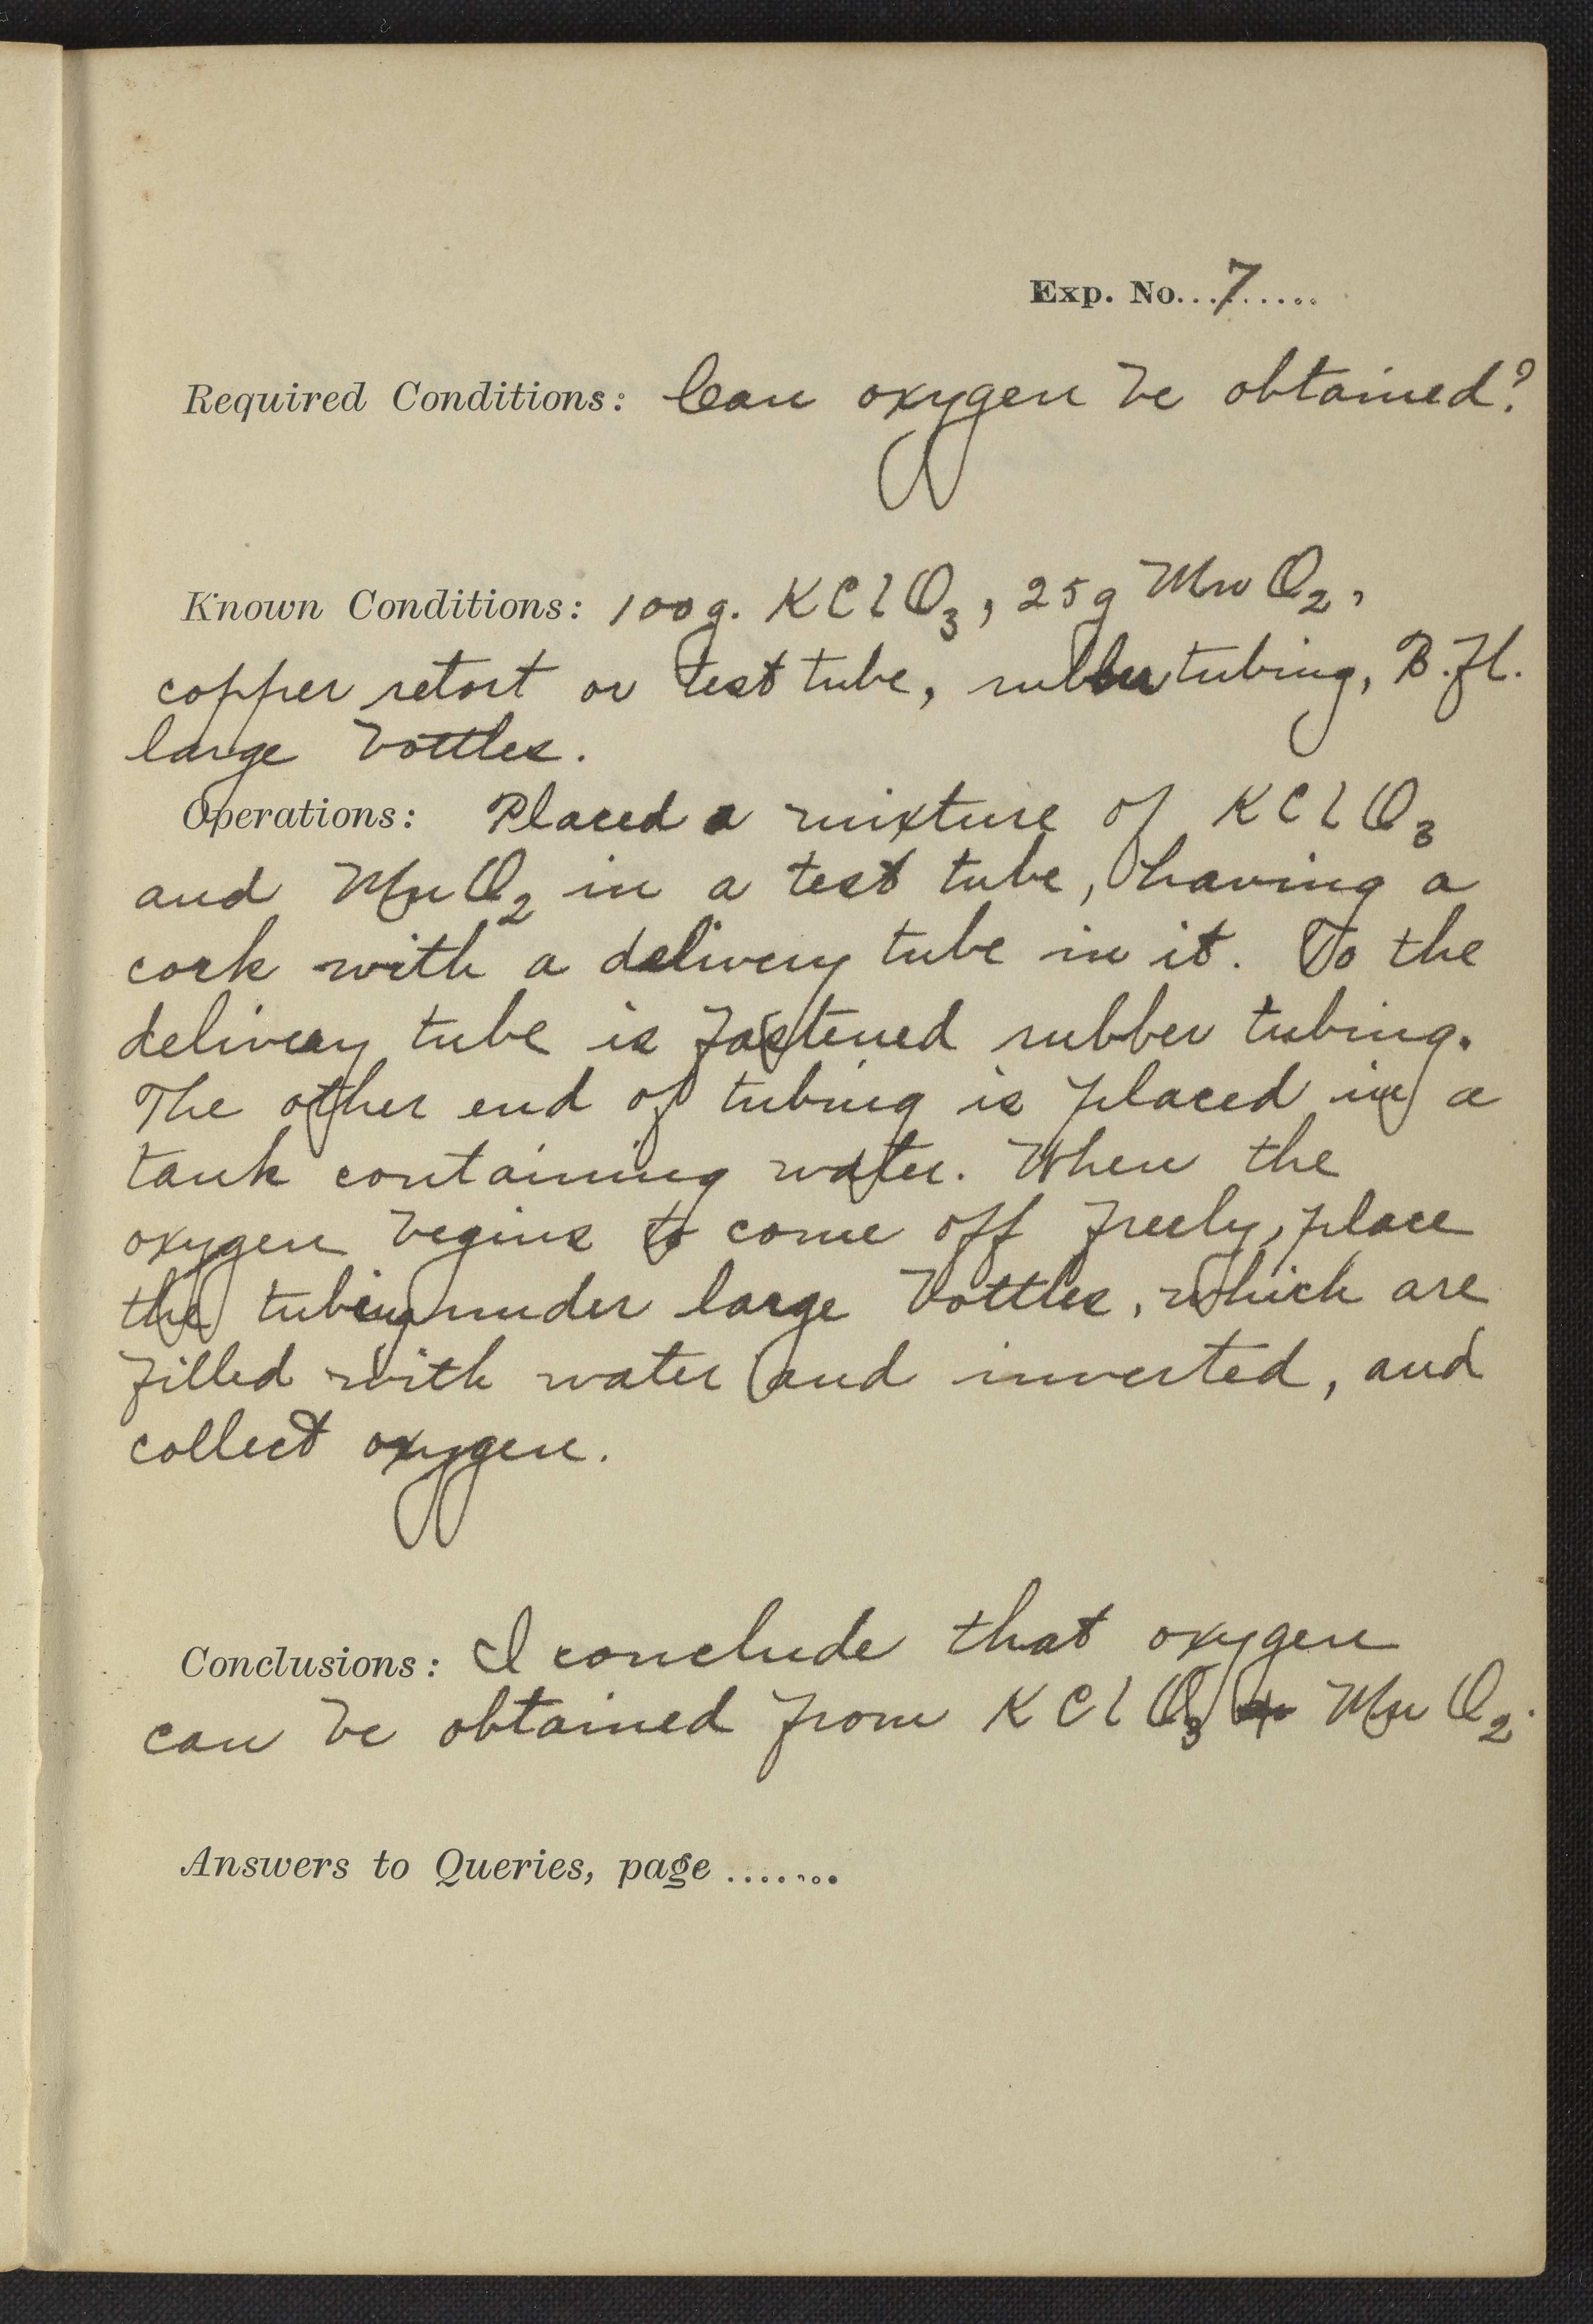 Exp. No...7......
Required Conditions: Can oxygen be obtained?
Known Conditions: 100g. KClO3, 25g MnO2,
copper retort or test tube, rubber tubing, B.H.
large bottles.
Operations: Placed a mixture of KClO3
and MnO2 in a test tube, having a
cork with a delivery tube in it. To the
delivery tube is fastened rubber tubing.
The other end of tubing is placed in a
tank containing water. When the
oxygen begins to come off freely, place
the tubing under large bottles, which are
filled with water and inverted, and
collect oxygen.
Conclusions: I conclude that oxygen
can be obtained from KClO3 + MnO2.
Answers to Queries, page ........